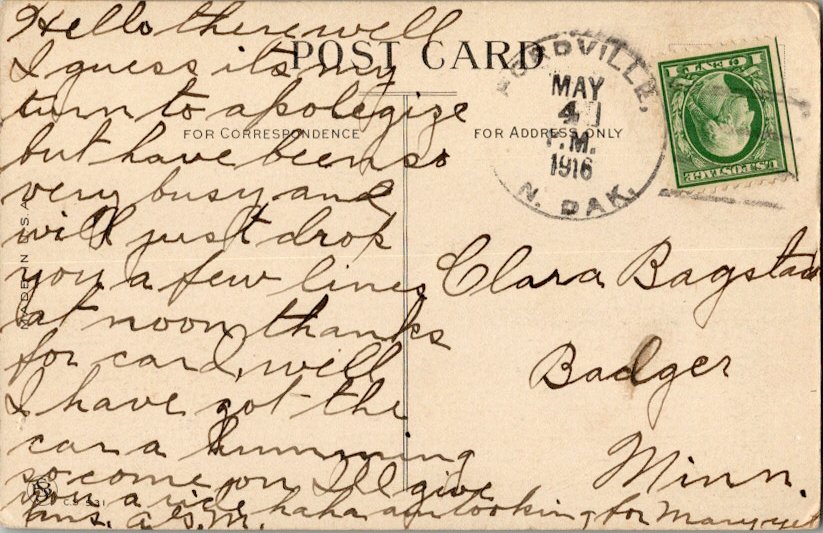 POST CARD
FOR CORRESPONDENCE
FOR ADDRESS ONLY
MADE IN U.S.A.
Hello there well
I guess its my
turn to apolegize
but have been so
very busy and
will just drop
you a few lines
at noon, thanks
for card, well
I have got the
car a humming
so come on I'll give
you a ride haha am looking for Mary yet
ans. A.S.M.
MAY
4
P.M.
1916
N. DAK.
1 CENT 1
U.S. POSTAGE
Clara Bagstad
Badger
Minn.